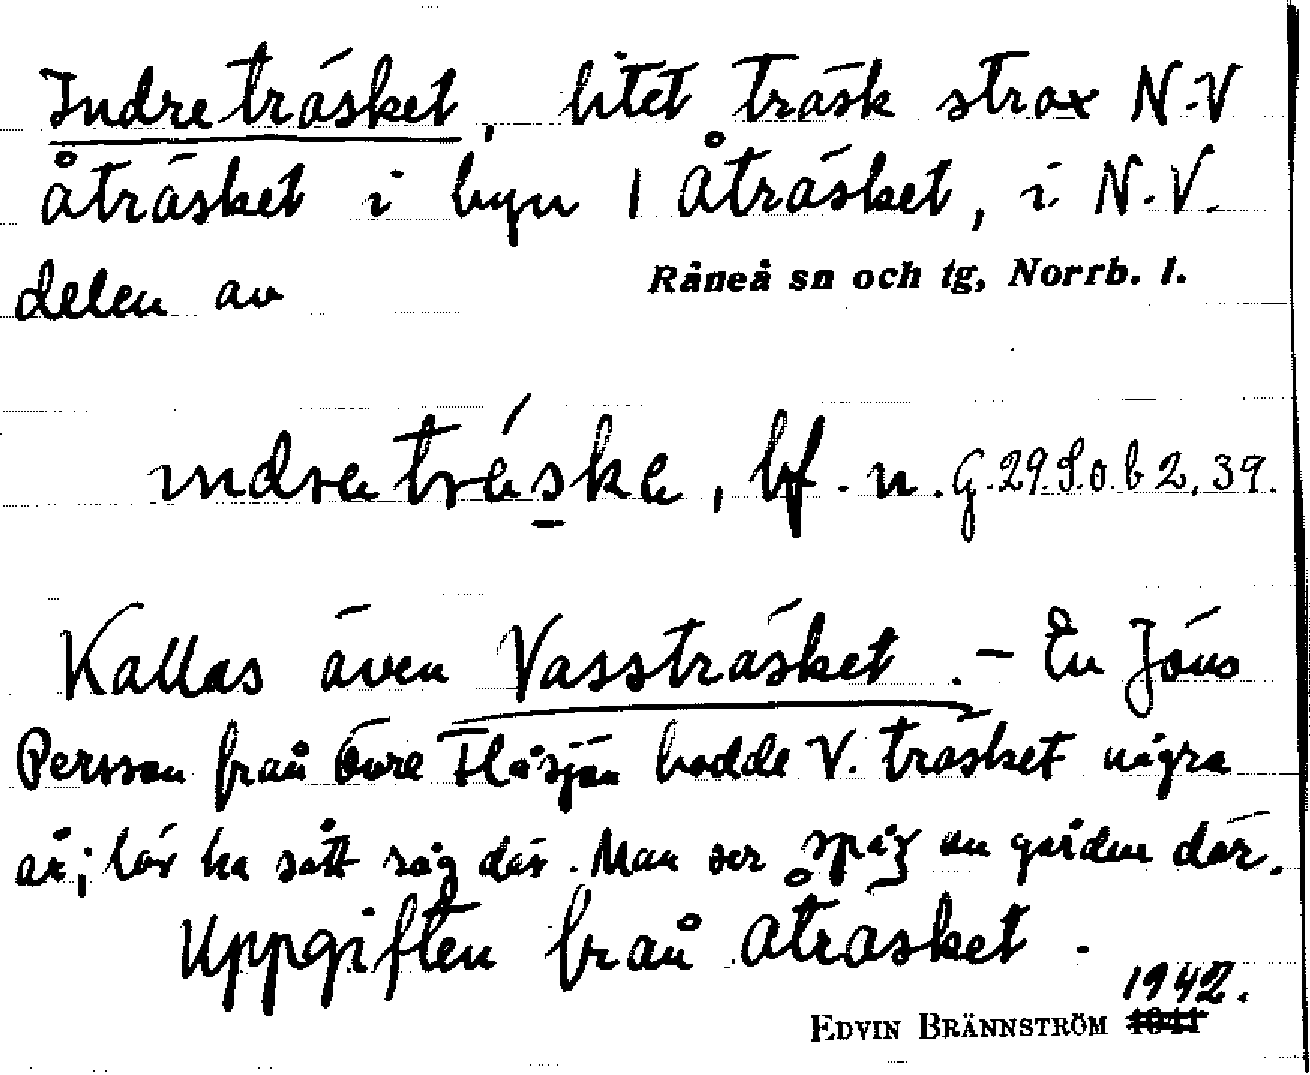 Indreträsket, litet träsk strax N.V
Åträsket i byn 1 Åträsket, i N.V.
delen av Råneå sn och tg, Norrb. l.
ındreträske, bf. n. G.29.S.o.b 2.39.
Kallas även Vassträsket. – En Jöns
Persson från Övre Flåsjön bodde V. träsket några
år; lär ha sått råg där. Man ser spår av gården där.
Uppgiften från Åträsket.
1942.
EDVIN BRÄNNSTRÖM 1941